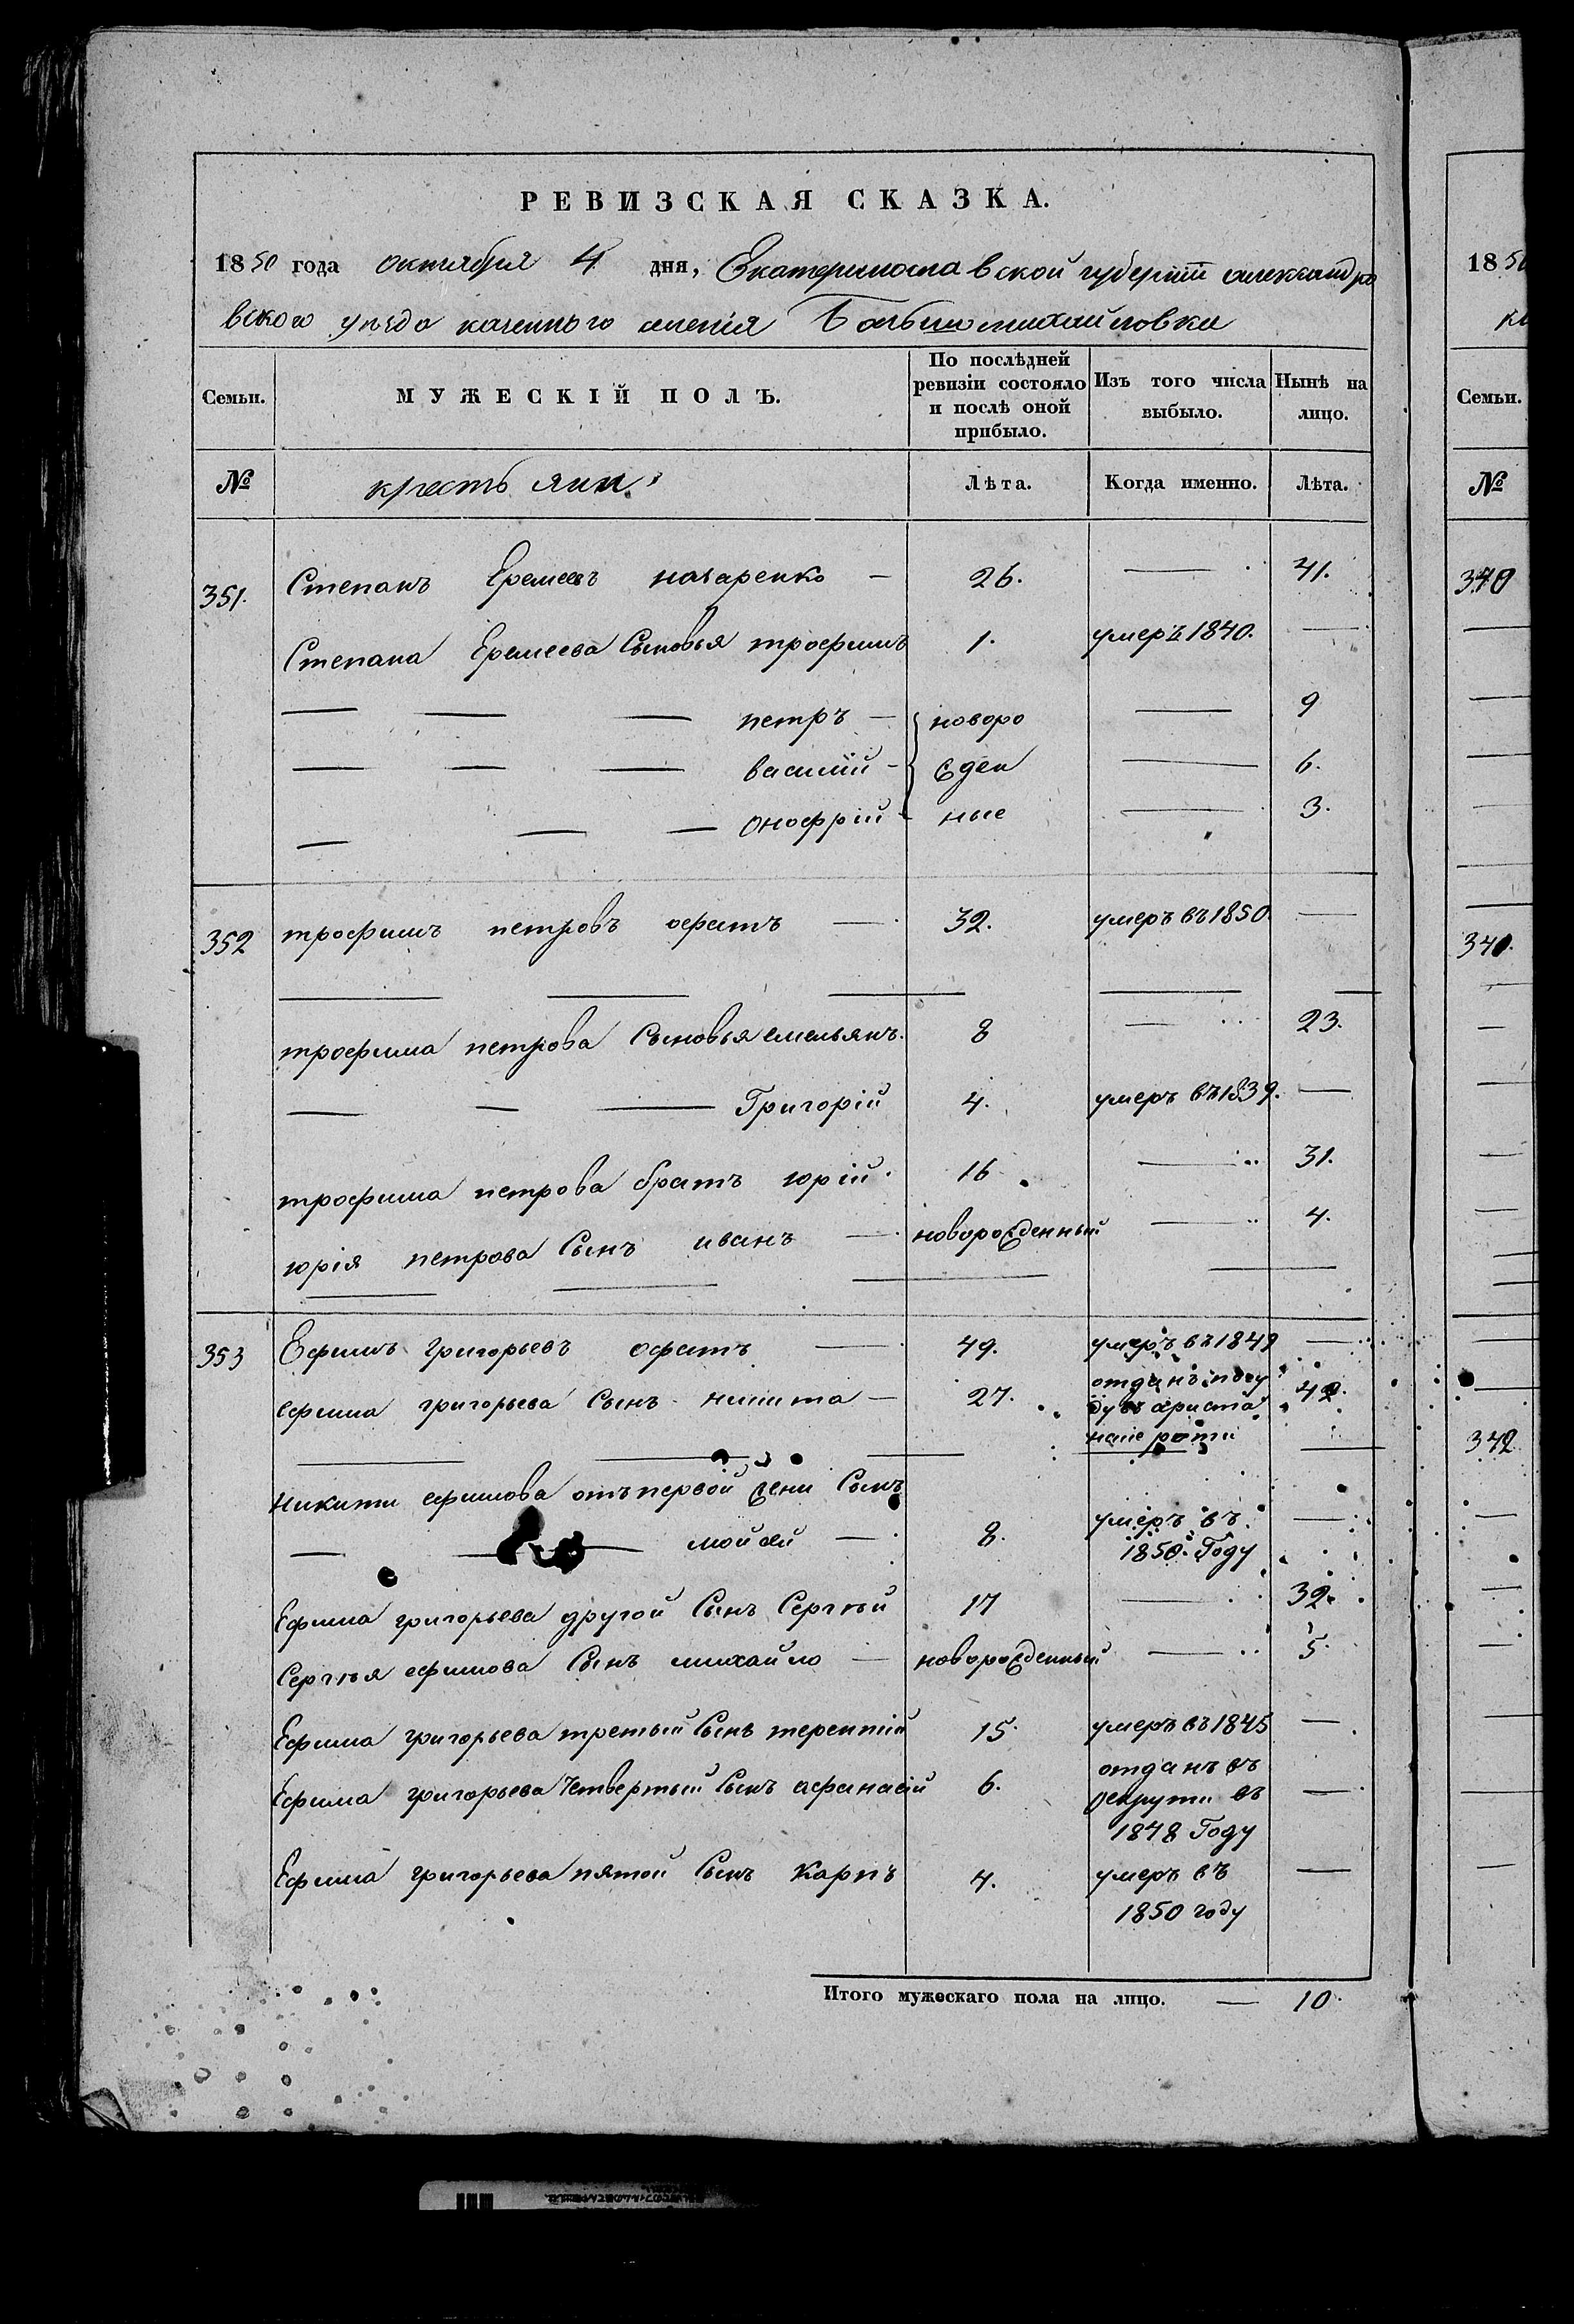 РЕВИЗСКАЯ СКАЗКА.
1850 года октября 4 дня, Екатеринославской губернiи александро
вского уѣзда казенного селенiя Больше михайловки
Семьи. МУЖЕСКІЙ ПОЛЪ. По послѣдней ревизіи состояло и послѣ оной прибыло. Изъ того числа выбыло. Нынѣ на лицо.
№ крестьяни Лѣта. Когда именно. Лѣта.
351. Степанъ Еремеевъ назаренко — 26. — 41.
Степана Еремеева Сыновья трофимъ 1. умеръ 1840. —
— — — петръ — новоро — 9
— — — василій — жден — 6.
— — — онофрій ные — 3.
352 трофимъ петровъ офатъ — 32. умеръ въ 1850 —
трофима петрова Сыновья емельянъ. 8 — 23.
— — — Григорій 4. умеръ въ 1839. —
трофима петрова братъ юрій 16 — 31.
юрія петрова Сынъ иванъ — новорожденный — 4.
353 Ефимъ григорьевъ офатъ — 49. умеръ въ 1849 —
ефима григорьева Сынъ никита — 27. отданъ по су
ду въ ариста 42.
нскіе роти
никити ефимова отъ первой жени Сынъ
— мойсей — 8. умеръ въ —
1850. Году
Ефима григорьева другой Сынъ Сергѣй 17 — 32.
Сергѣя ефимова Сынъ михайло — новорожденный — 5.
Ефима григорьева третый Сынъ терентій 15. умеръ въ 1845 —
Ефима григорьева Четвертый Сынъ афанасій 6. отданъ въ
рекрути въ —
1848 Году
Ефима григорьева пятой Сынъ Карпъ 4. умеръ въ —
1850 году
Итого мужескаго пола на лицо. — 10.
1850
Семьи.
№
340
341.
342